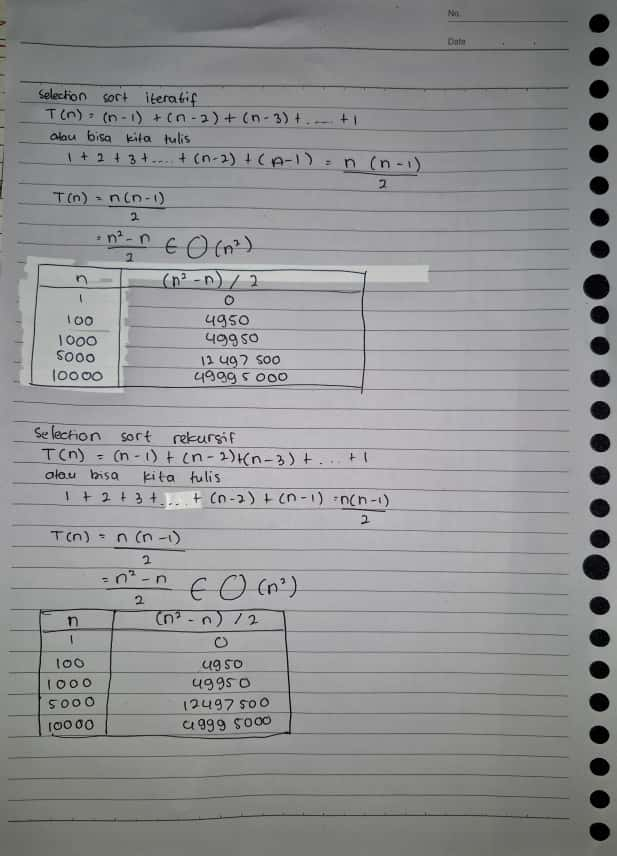 No.
Date
Selection sort iteratif
T(n) = (n-1) + (n-2) + (n-3) + ..... + 1
atau bisa kita tulis
1 + 2 + 3 + .... + (n-2) + (n-1) = n (n-1) / 2
T(n) = n(n-1) / 2
= n² - n / 2 ∈ O(n²)
n (n² - n) / 2
1 0
100 4950
1000 49950
5000 12497500
10000 49995000
Selection sort rekursif
T(n) = (n-1) + (n-2)+(n-3) + ... + 1
atau bisa kita tulis
1 + 2 + 3 + .... + (n-2) + (n-1) = n(n-1) / 2
T(n) = n (n-1) / 2
= n² - n / 2 ∈ O(n²)
n (n² - n) / 2
1 0
100 4950
1000 49950
5000 12497500
10000 49995000